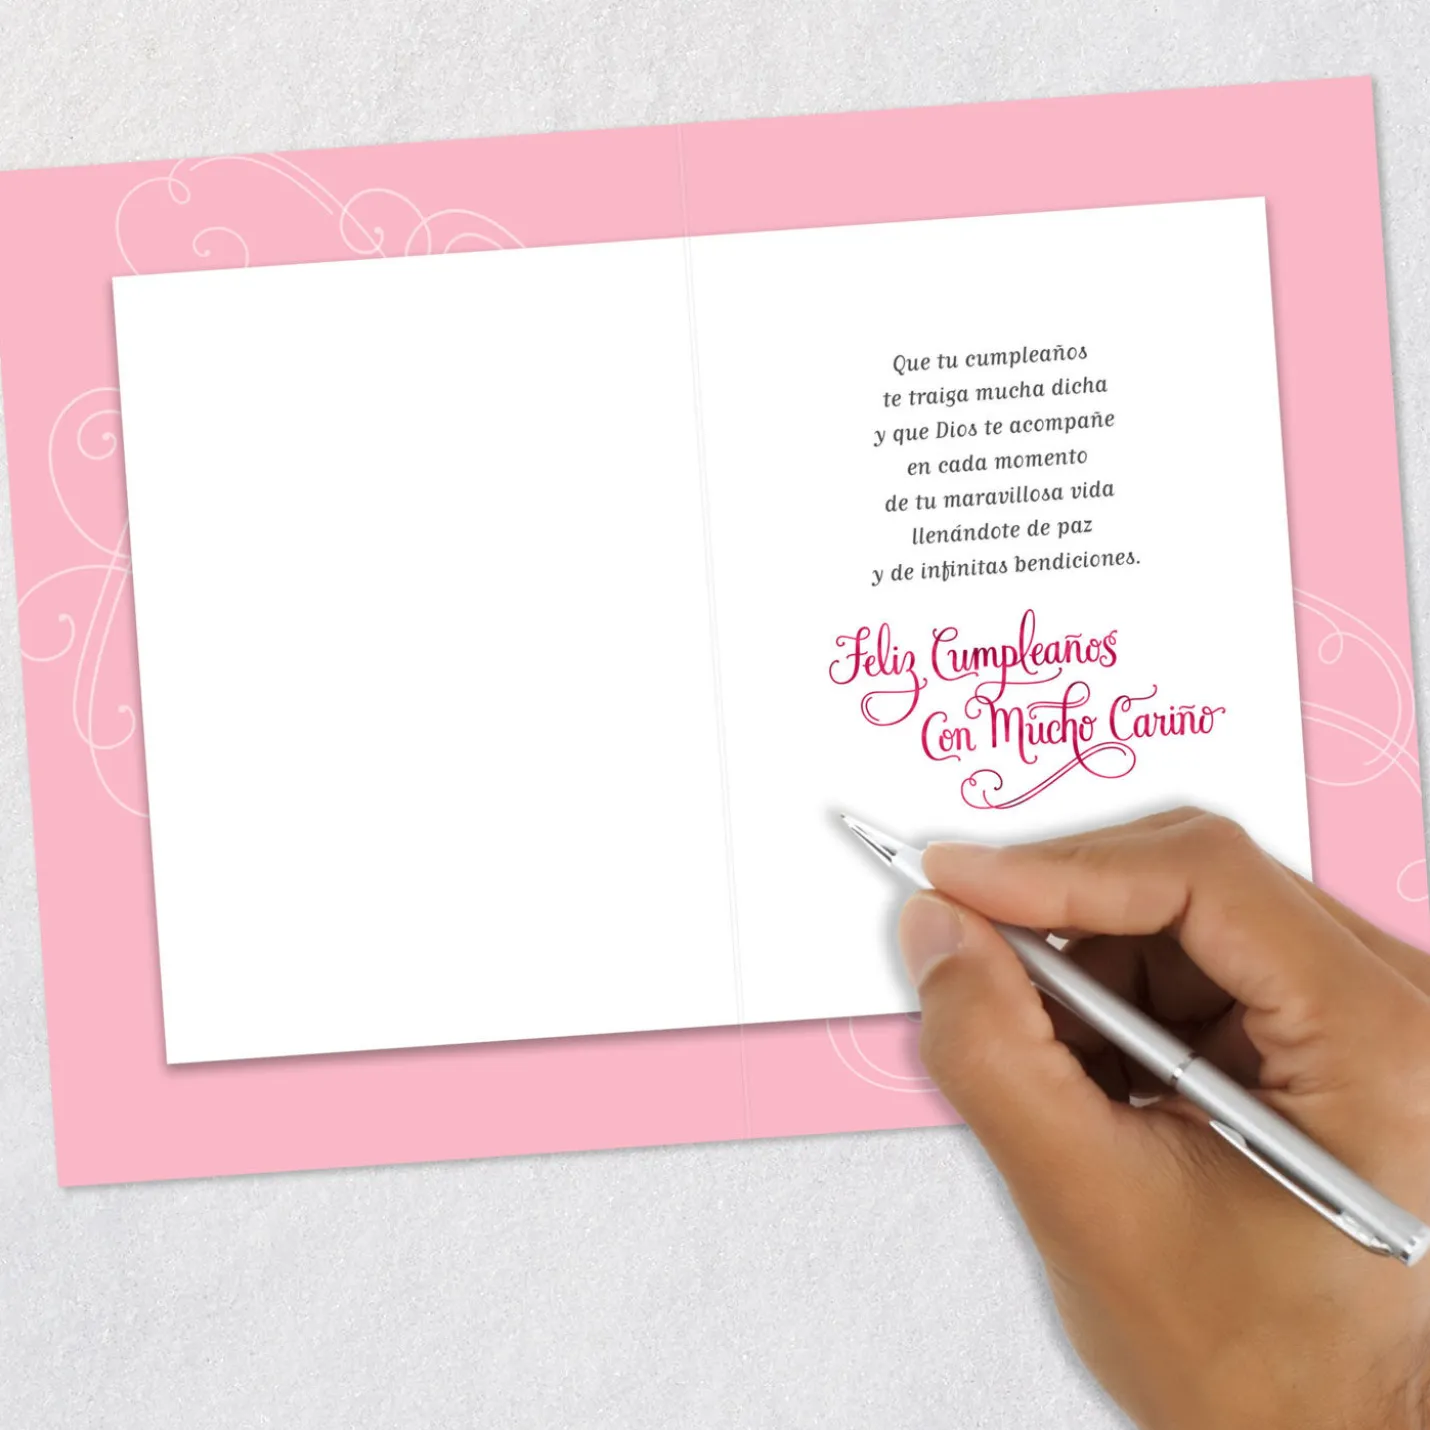 Que tu cumpleaños
te traiga mucha dicha
y que Dios te acompañe
en cada momento
de tu maravillosa vida
llenándote de paz
y de infinitas bendiciones.
Feliz Cumpleaños
Con Mucho Cariño